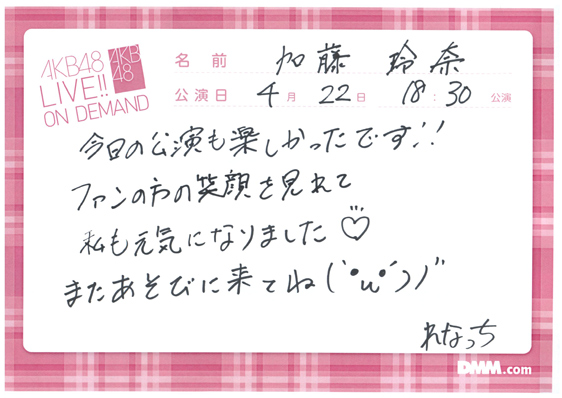 AKB48
LIVE!!
ON DEMAND
AKB
48
名前 加藤 玲奈
公演日 4月 22日 18:30 公演
今日の公演も楽しかったです!!
ファンの方の笑顔を見れて
私も元気になりました♡
またあそびに来てね(`•ω•´)ノ"
れなっち
DMM.com